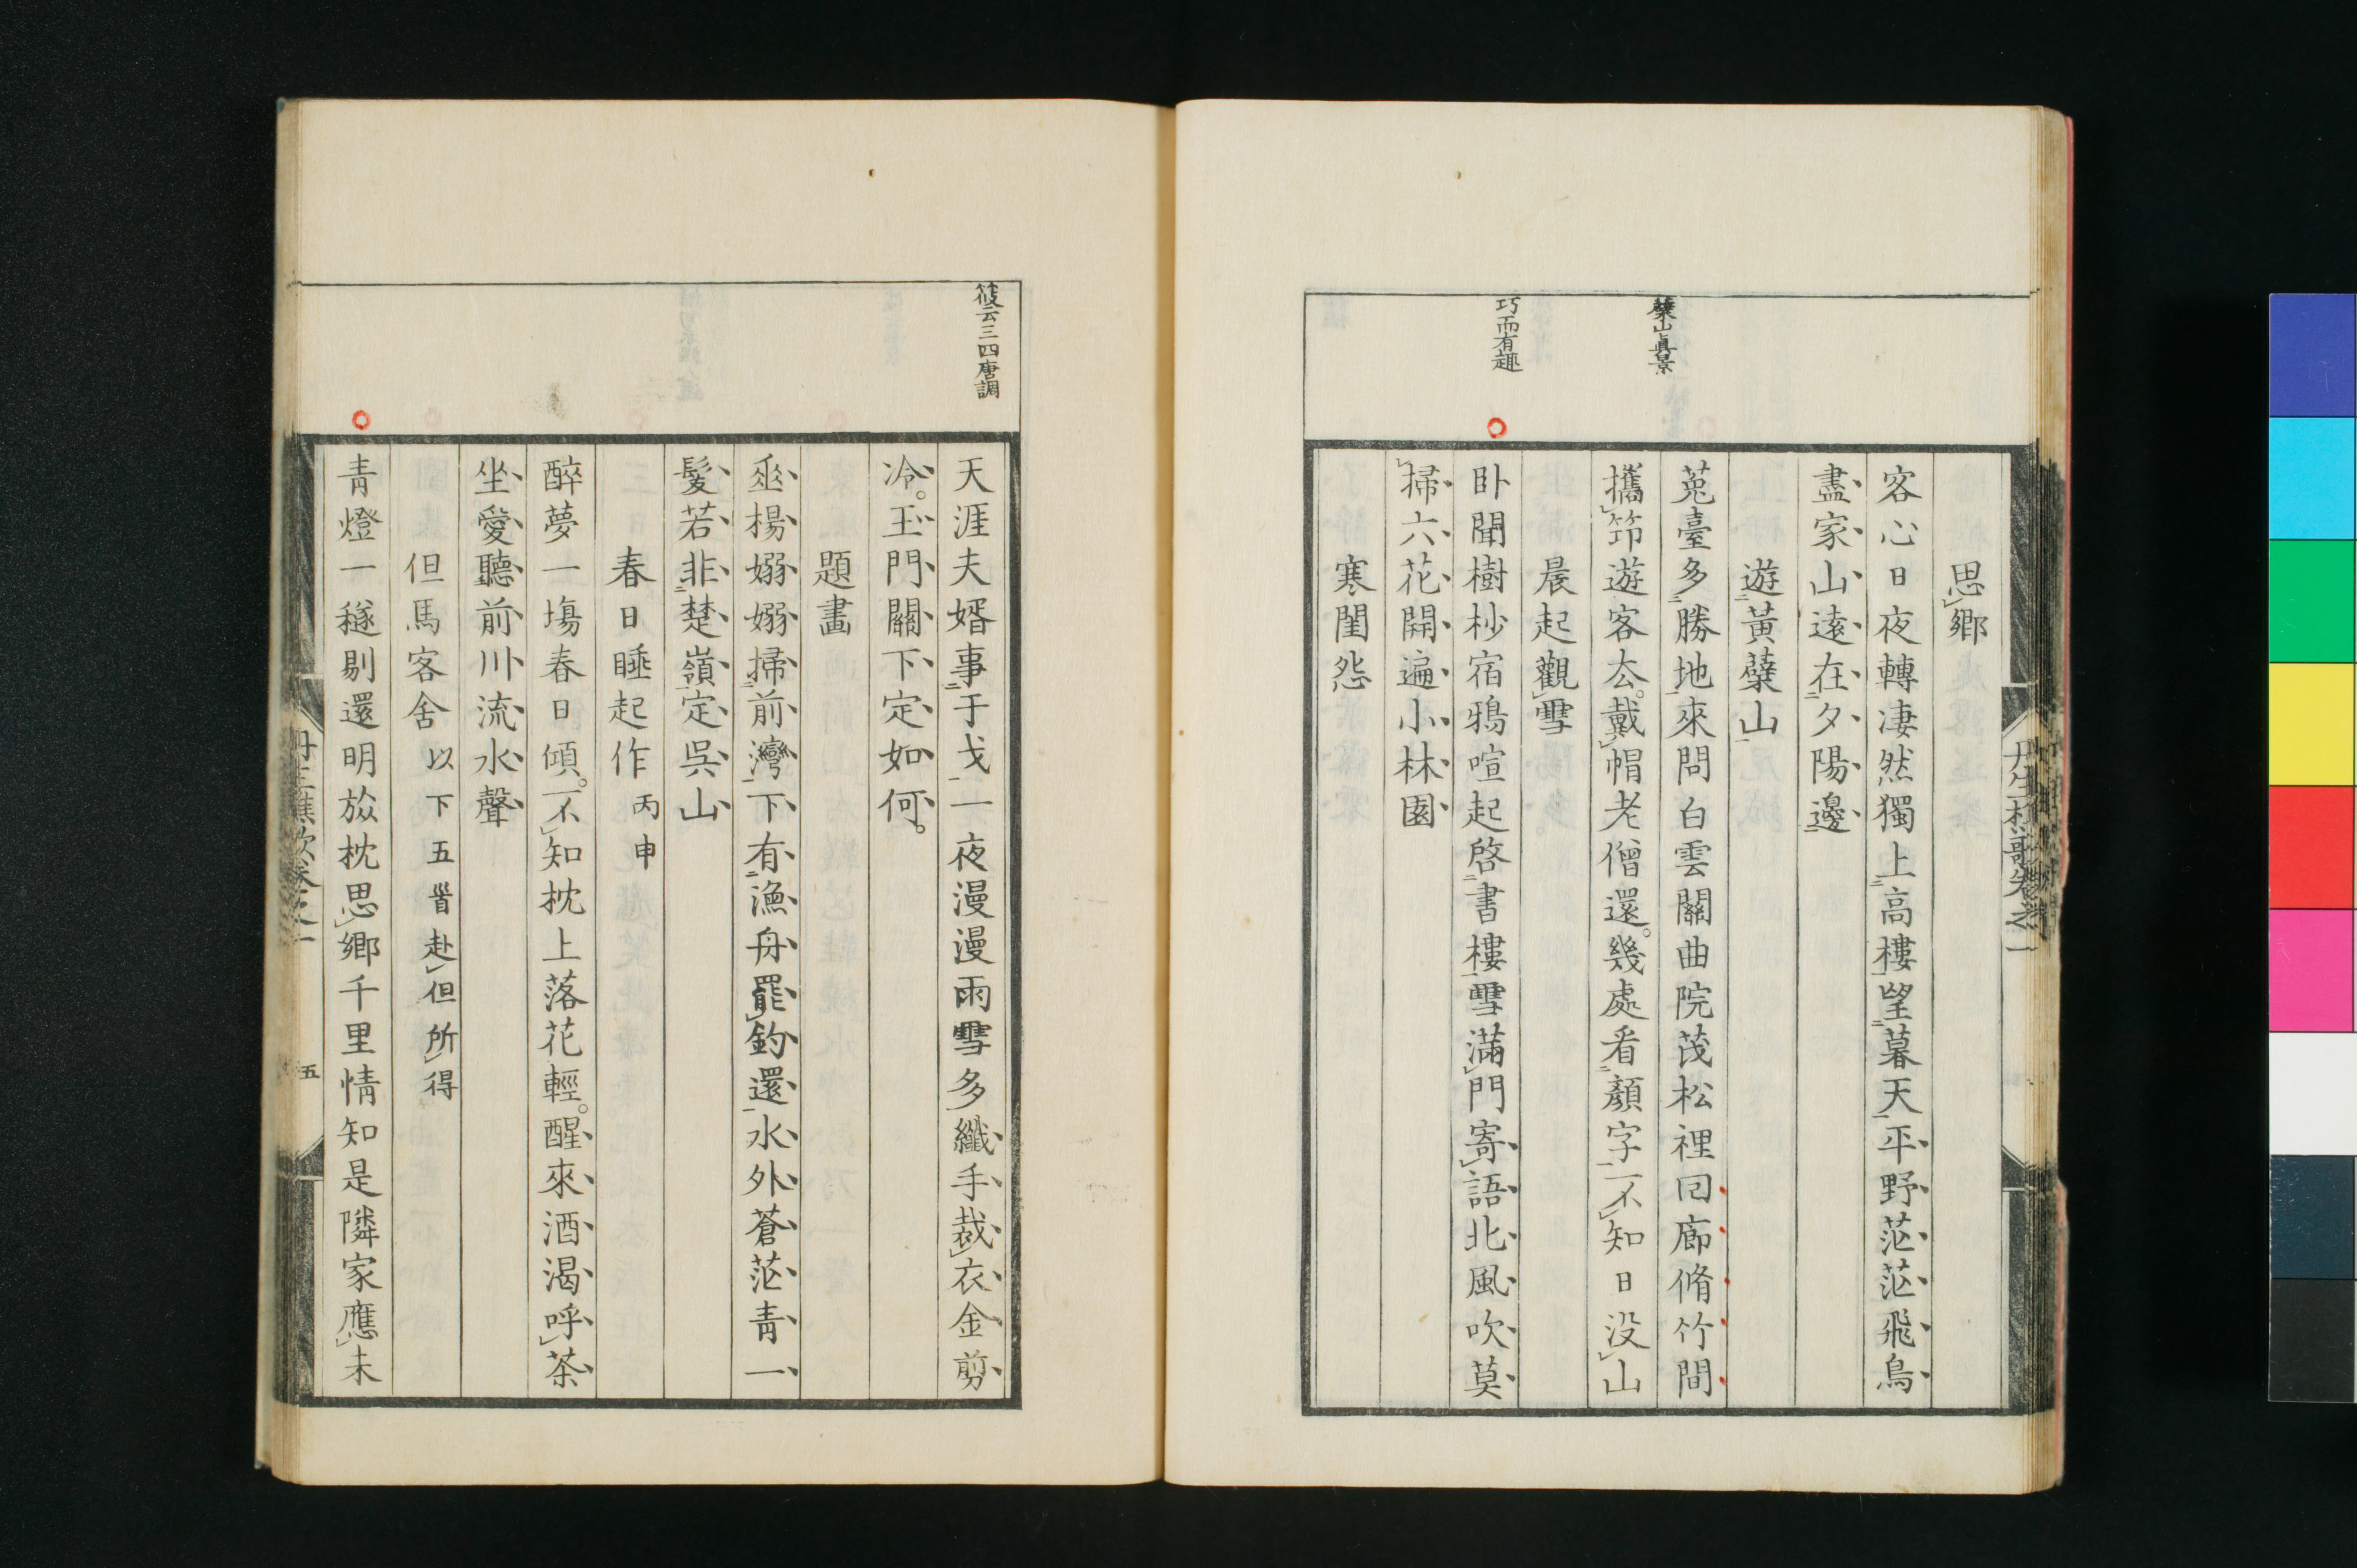 思鄉
客心日夜轉凄然獨上高樓望暮天平野茫茫飛鳥
盡家山遠在夕陽邊
遊黃蘗山
蘗山眞景
莵臺多勝地來問白雲關曲院茂松裡回廊脩竹間
攜笻遊客去戴帽老僧還幾處看顏字不知日没山
晨起觀雪
巧而有趣
卧聞樹杪宿鴉喧起啓書樓雪滿門寄語北風吹莫
掃六花開遍小林園
寒閨怨
筱云三四唐調
天涯夫婿事于戈一夜漫漫雨雪多纖手裁衣金剪
冷玉門關下定如何
題畫
垂楊嫋嫋掃前灣下有漁舟罷釣還水外蒼茫青一
髮若非楚嶺定吳山
春日睡起作 丙申
醉夢一塲春日傾不知枕上落花輕醒來酒渴呼茶
坐愛聽前川流水聲
但馬客舍 以下五首赴但所得
青燈一穟剔還明放枕思鄉千里情知是隣家應未
五